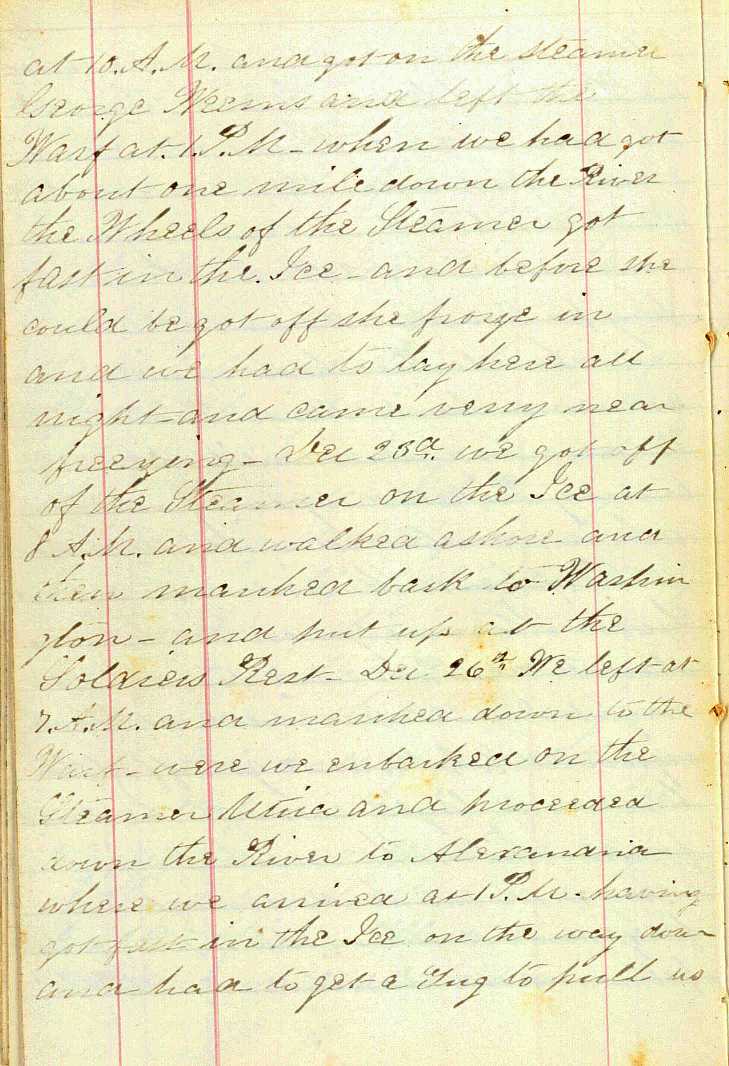 at 10. A. M. and got on the steamer
George Weems and left the
Warf at. 1. P. M - when we had got
about one mile down the River
the Wheels of the Steamer got
fast in the Ice - and before she
could be got off she froze in
and we had to lay here all
night - and came verry near
freezing - Dec 25th. we got off
of the Steamer on the Ice at
8 A. M. and walked ashore and
then marched back to Washin
gton - and put up at the
Soldiers Rest - Dec 26th. We left at
7. A. M. and marched down to the
Warf - were we enbarked on the
Steamer Utica and proceeded
down the River to Alexandria
where we arrived at 1 P. M - having
got fast in the Ice on the way down
and had to get a Tug to pull us